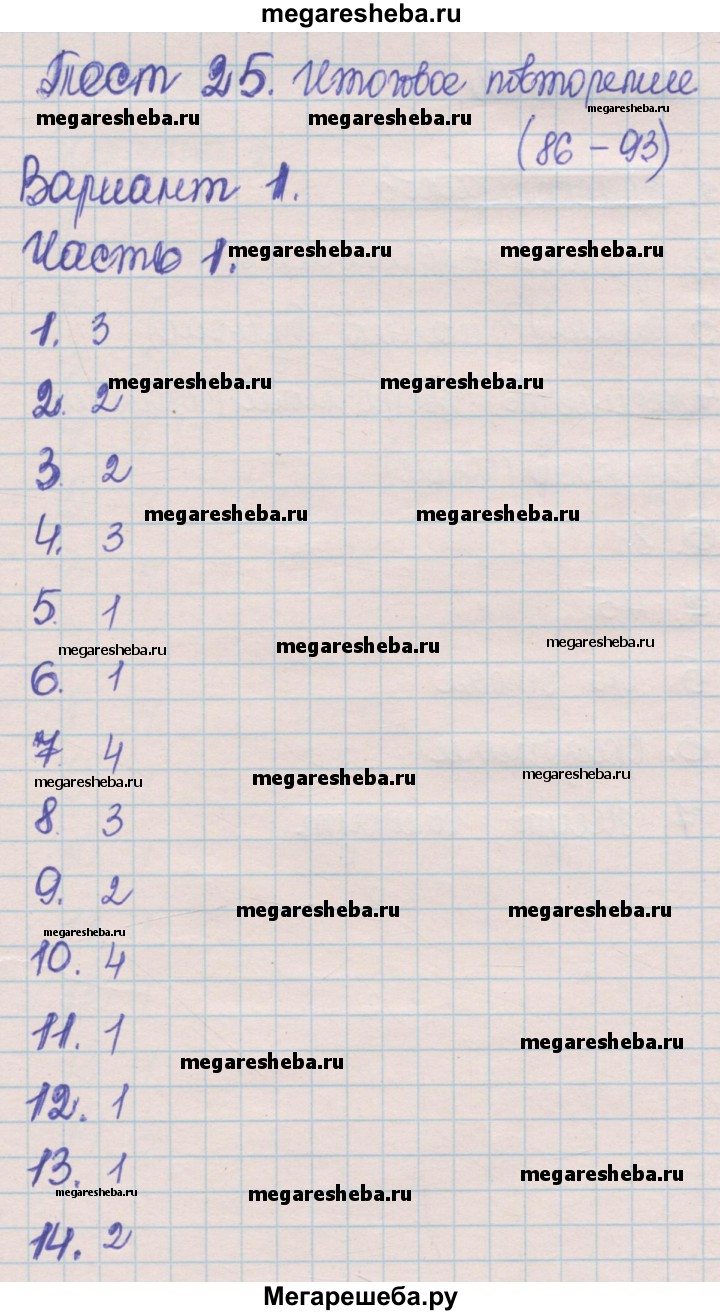 megaresheba.ru
Тест 25. Итоговое повторение
megaresheba.ru megaresheba.ru megaresheba.ru
(86 - 93)
Вариант 1.
Часть 1. megaresheba.ru megaresheba.ru
1. 3
megaresheba.ru megaresheba.ru
2. 2
3. 2
megaresheba.ru megaresheba.ru
4. 3
5. 1
megaresheba.ru megaresheba.ru megaresheba.ru
6. 1
7. 4
megaresheba.ru megaresheba.ru megaresheba.ru
8. 3
9. 2
megaresheba.ru megaresheba.ru
megaresheba.ru
10. 4
11. 1
megaresheba.ru megaresheba.ru
12. 1
13. 1
megaresheba.ru megaresheba.ru megaresheba.ru
14. 2
Мегарешеба.ру